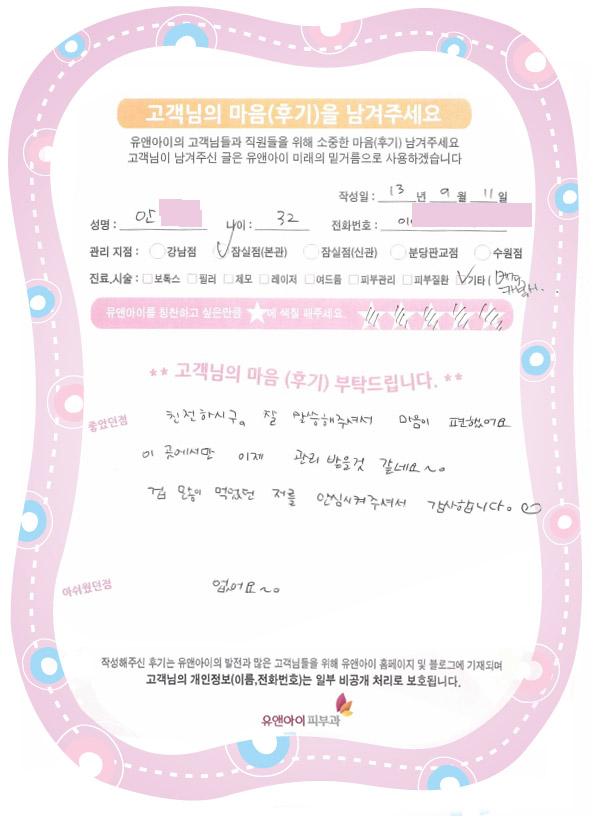 고객님의 마음(후기)을 남겨주세요
유앤아이의 고객님들과 직원들을 위해 소중한 마음(후기) 남겨주세요
고객님이 남겨주신 글은 유앤아이 미래의 밑거름으로 사용하겠습니다
작성일 : 13 년 9 월 11 일
성명 : 안 나이 : 32 전화번호 : 01
관리 지점 : 강남점 잠실점(본관) 잠실점(신관) 분당판교점 수원점
진료,시술 : 보톡스 필러 제모 레이저 여드름 피부관리 피부질환 기타 (
유앤아이를 칭찬하고 싶은만큼 ★에 색칠 해주세요.
** 고객님의 마음 (후기) 부탁드립니다. **
좋았던점 친전하시구。 잘 말씀해주셔서 마음이 편했어요
이 곳에서만 이제 관리 받을것 같네요~。
겁 먹었던 저를 안심시켜주셔서 감사합니다。
아쉬웠던점 없어요~。
작성해주신 후기는 유앤아이의 발전과 많은 고객님들을 위해 유앤아이 홈페이지 및 블로그에 기재되며
고객님의 개인정보(이름,전화번호)는 일부 비공개 처리로 보호됩니다.
유앤아이 피부과